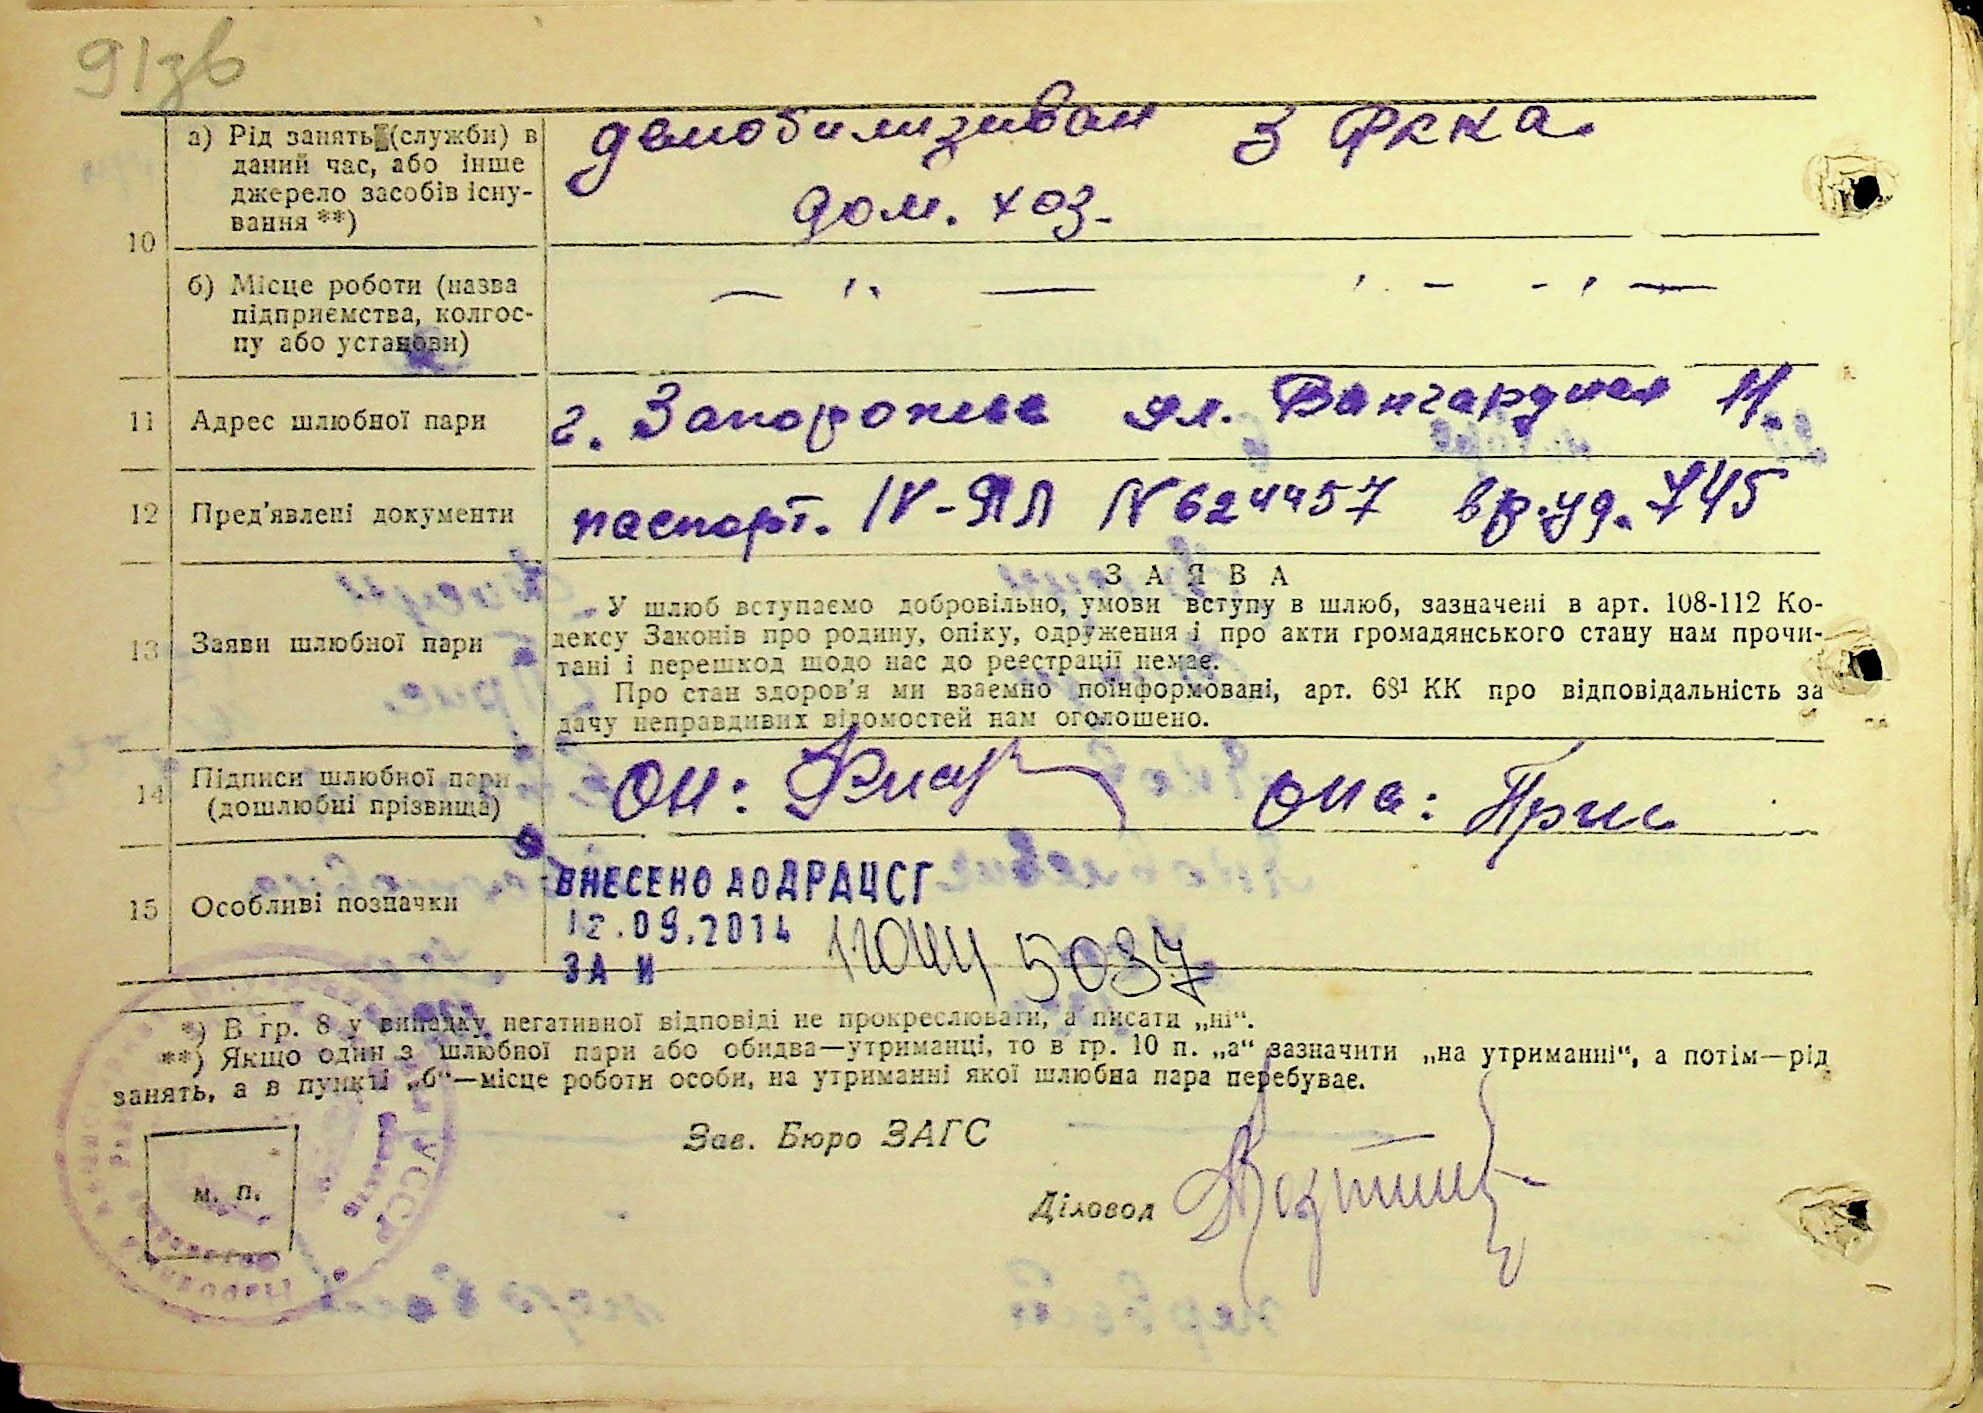 91зв
а) Рід занять (служби) в
даний час, або інше
джерело засобів існу-
вання **)
демобилизиван З Ркка.
дом. хоз.
10
б) Місце роботи (назва
підприємства, колгос-
пу або установи)
11 Адрес шлюбної пари
г. Запорожье ул. Вангардная 11.
12 Пред'явлені документи
паспорт. IV-ЯЛ N 624457 вр.уд. 745
13 Заяви шлюбної пари
ЗАЯВА
У шлюб вступаємо добровільно, умови вступу в шлюб, зазначені в арт. 108-112 Ко-
дексу Законів про родину, опіку, одруження і про акти громадянського стану нам прочи-
тані і перешкод щодо нас до реєстрації немає.
Про стан здоров'я ми взаємно поінформовані, арт. 68¹ КК про відповідальність за
дачу неправдивих відомостей нам оголошено.
14 Підписи шлюбної пари
(дошлюбні прізвища)
Он: Она: Прис
15 Особливі позначки
ВНЕСЕНО ДО ДРАЦСГ
12.09.2014
ЗА N 5037
*) В гр. 8 у випадку негативної відповіді не прокреслювати, а писати „ні“.
**) Якщо один з шлюбної пари або обидва—утриманці, то в гр. 10 п. „а“ зазначити „на утриманні“, а потім—рід
занять, а в пункті „б“—місце роботи особи, на утриманні якої шлюбна пара перебуває.
Зав. Бюро ЗАГС
м. п.
Діловод
УССР